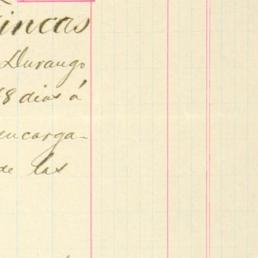 Fincas
Durango
8 dias á
encarga-
de las